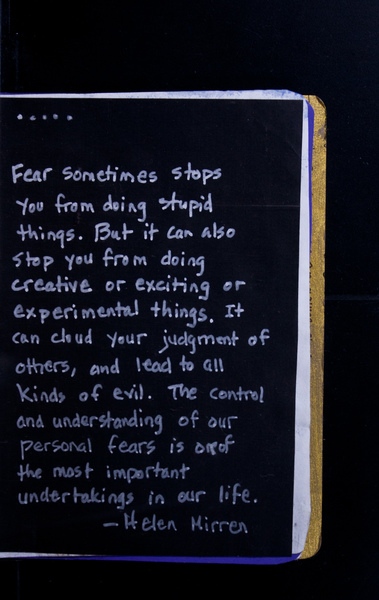 Fear sometimes stops
you from doing stupid
things. But it can also
stop you from doing
creative or exciting or
experimental things. It
can cloud your judgment of
others, and lead to all
kinds of evil. The control
and understanding of our
personal fears is one of
the most important
undertakings in our life.
— Helen Mirren